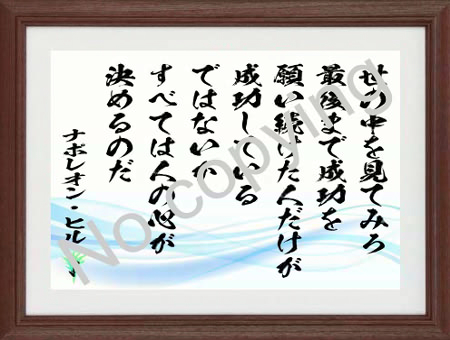 世の中を見てみろ
最後まで成功を
願い続けた人だけが
成功している
ではないか
すべては人の心が
決めるのだ
ナポレオン・ヒル
No copying